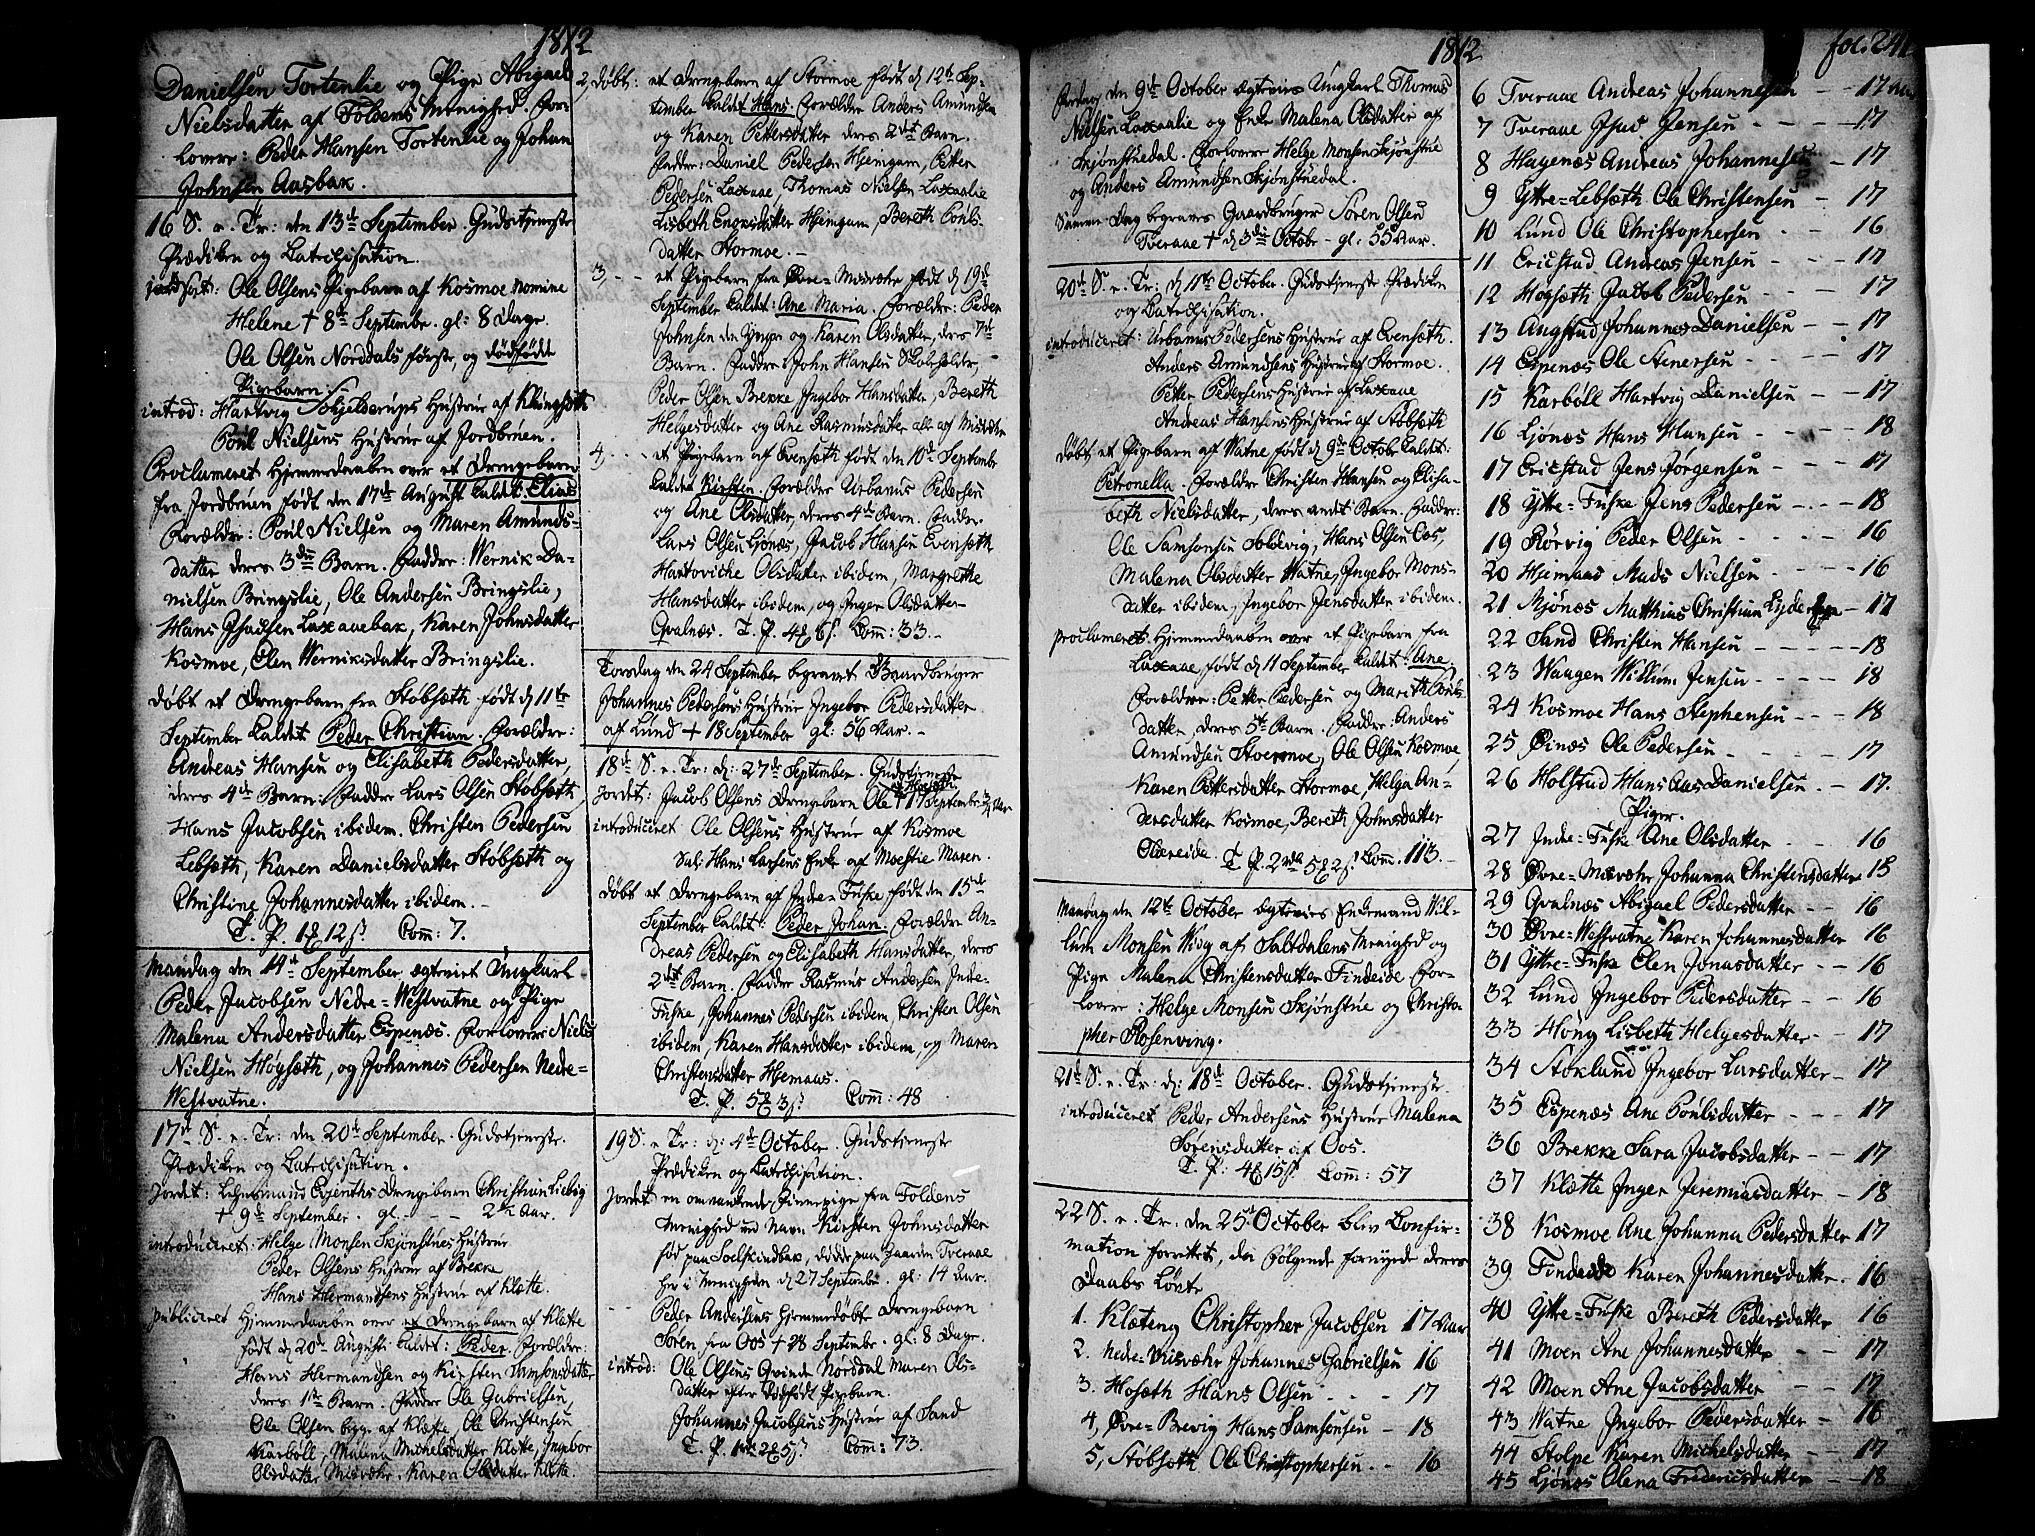 1812
Danielsen Tortenlie og Pige Abigael
Nielsdatter af Foldens Menighed. For-
lovere: Peder Hansen Tortenlie og Johan
Johnsen Aasbak.
16 S. e. Tr: den 13de September. Gudstjeneste
Prædiken og Catechisation.
jordfæstet: Ole Olsens Pigebarn af Kosmoe nomine
Helene † 8de Septembr. gl: 8 Dage.
Ole Olsen Norddals første, og dødfødte
Pigebarn.
introd: Hartvig Schjelderups Hustrue af Klungsæth
Poul Nielsens Hustrue af Jordbruen.
Proclameret Hjemmedaaben over et Drengebarn
fra Jordbruen født den 17de August kaldet: Elias
Forældre: Poul Nielsen og Maren Amunds-
datter deres 3die Barn. Faddre: Wernik Da-
nielsen Bringslie, Ole Andersen Bringslie,
Hans Isacsen Laxaaebak, Karen Johnsdatter
Kosmoe, Elen Werniksdatter Bringslie.
døbt et Drengebarn fra Støbsæth født d 11te
September kaldet Peder Christian. Forældre:
Andreas Hansen og Elisabeth Pedersdatter,
deres 4de Barn: Faddre Lars Olsen Støbsæth
Hans Jacobsen ibidem. Christen Pedersen
Lebsæth, Karen Danielsdatter Støbsæth og
Christine Johannesdatter ibidem.
T. P. 12 Com: 7.
Mandag den 14de September ægteviet Ungkarl
Peder Jacobsen Nedre=Westvatne og Pige
Malena Andersdatter Espenæs. Forlovere Niels
Nielsen Høgsæth, og Johannes Pedersen Nedre=
Westvatne.
17de S. e. Tr: den 20de September. Gudstjeneste.
Prædiken og Catechisation.
Jordet: Drengebarn Christian
† 9de September. gl. - - - 2½ Aar.
introduceret: Helge Monsen Skjønstues Hustrue
Peder Olsens Hustrue af Brekke
Hans Hermandsens Hustrue af Klette.
publiceret Hjemmedaaben over et Drengebarn af Klætte
født d 20de Augusti kaldet: Peder. Forældre:
Hans Hermandsen og Kirsten Samsonsdatter
deres 1te Barn. Faddre Ole Gabrielsen,
Ole Olsen af Klætte, Ole Christensen
Karbøll, Malena Michelsdatter Klætte, Ingebor
Olsdatter Misvær. Karen Olsdatter Klætte.
2, døbt: et Drengebarn af Stormoe født d 12te Sep-
tember kaldet Hans. Forældre Anders Amundsen
og Karen Pettersdatter deres 2det Barn.
Faddere: Daniel Pedersen Hjemgam, Petter
Pedersen Laxaae, Thomas Nielsen Laxaalie
Lisbeth Enoksdatter Hjemgam, Bereth Pouls-
datter Stormoe.
3, - - et Pigebarn fra Øvre=Misvæhr født d 19de
September kaldet: Ane Maria. Forældre: Peder
Johnsen den Yngre og Karen Olsdatter, deres 7de
Barn. Faddre: John Hansen Skoleholder,
Peder Olsen Brekke Ingebor Hansdatter, Bereth
Helgesdatter og Ane Rasmusdatter alle af Misvæhr
4, - - et Pigebarn af Evensæth født den 10de Septembr
kaldet Kirsten. Forældre Urbanus Pedersen
og Ane Olsdatter, deres 4de Barn. Faddre:
Lars Olsen Ljønæs, Jacob Hansen Evensæth
Hartoviche Olsdatter ibidem, Margrethe
Hansdatter ibidem, og Inger Olsdatter
Qvalnæs. T. P. Com: 33.
Torsdag den 24 September begravet Gaardbruger
Johannes Pedersens Hustrue Ingebor Pedersdatter
af Lund † 18 September gl: 56 Aar.
18de S. e. Tr: d: 27de September. Gudstjeneste
Jordet: Jacob Olsens Drengebarn Ole † 17 September
introduceret Ole Olsens Hustrue af Kosmoe
Sal: Hans Larsens Enke af Moestie Maren.
døbt et Drengebarn af Indre=Fuske født den 15de
September kaldet: Peder Johan. Forældre An-
dreas Pedersen og Elisabeth Hansdatter, deres
2det Barn. Faddre Rasmus Andersen Indre=
Fuske, Johannes Pedersen ibidem Christen Olsen
ibidem, Karen Hansdatter ibidem, og Maren
Christensdatter Hjemaas.
T. P. Com: 48
19 S. e Tr: d: 4de October. Gudstjeneste
Prædiken og Catechisation.
Jordet: en omvankende Finnepige fra Foldens
Menighed ved Navn Kirsten Johnsdatter
fød paa Soelskindbak, døde paa Gaarden Tveraae
her i Menigheden d 27 Septembr. gl: 14 Aar.
Peder Andersens hjemmedøbte Drengebarn
Søren fra Oos † 28 Septembr. gl: 8 Dage.
introd: Ole Olsens Qvinde Norddal Maren Ols-
datter efter Dødfødt Pigebarn.
Johannes Jacobsens Hustrue af Sand
T. P. Com: 73.
1812
Fredag den 9de October ægtevies Ungkarl Thomas
Nielsen Laxaalie og Enke Malena Olsdatter af
Skjønstuedal. Forlovere Helge Monsen Skjønstue
og Anders Amundsen Skjønstuedal.
Samme Dag begraves Gaardbruger Søren Olsen
Tveraae † d 3die Octobr - gl: 55 Aar.
20de S. e. Tr: d 11te October. Gudstjeneste Prædiken
og Catechisation.
introduceret: Urbanus Pedersens Hustrue af Evensæth.
Anders Amundsens Hustrue af Stormoe.
Petter Pedersens Hustrue af Laxaae
Andreas Hansens Hustrue af Støbsæth
døbt et Pigebarn af Watne født d 9de Octobr kaldet:
Petronella. Forældre Christen Hansen og Elisa-
beth Nielsdatter, deres andet Barn. Faddre:
Ole Samsonsen Soldvig, Hans Olsen Oos,
Malena Olsdatter Watne, Ingebor Mons-
datter ibidem, Ingebor Jensdatter ibidem.
proclameret. Hjemmedaaben over et Pigebarn fra
Laxaae, født d 11 September kaldet: Ane.
Forældre: Petter Pedersen og Mareth Pouls-
datter, deres 5te Barn. Faddre: Anders
Amundsen Stormoe, Ole Olsen Kosmoe,
Karen Pettersdatter Stormoe, Helga An-
dersdatter Kosmoe, Bereth Johnsdatter
T. P. Com: 113.
Mandag den 12te October ægtevies Enkemand Wil-
lum Monsen Wiig af Saltdalens Menighed og
Pige Malena Christensdatter Findeide. For-
lovere: Helge Monsen Skjønstue og Christo-
pher Rosenving.
21de S. e. Tr: d: 18de October. Gudstjeneste.
introduceret Peder Andersens Hustrue Malena
Sørensdatter af Oos.
T. P: Com: 57
22 S. e. Tr. den 25de October blev Confir-
mation forrettet, da følgende fornyede deres
Daabs Løvte
1. Klæteng Christopher Jacobsen 17 Aar
2. Nedre=Misvæhr Johannes Gabrielsen 16
3. Hosæth Hans Olsen - - - 17
4, Øvre=Brevig Hans Samsonsen - 18
5, Støbsæth Ole Christophersen - - 16
fol: 241
6 Tveraae Andreas Johannesen - - 17 Aar
7 Tveraae Isac Jensen - - - 17
8 Hagenæs Andreas Johannesen - 17
9 Yttre=Lebsæth Ole Christensen - 17
10 Lund Ole Christophersen - - 16
11 Erichstad Andreas Jensen - - 17
12 Høgsæth Jacob Pedersen - - - 17
13 Augstad Johannes Danielsen - - 17
14 Espenæs Ole Stenersen - - - 17
15 Karbøll Hartvig Danielsen - - 17
16 Ljønæs Hans Hansen - - - - 18
17 Erichstad Jens Jørgensen - - - 17
18 Yttre=Fuske Jens Pedersen - - - 18
19 Rørvig Peder Olsen - - - - 16
20 Hjemaas Mads Nielsen - - - - 16
21 Mjønæs Matthias Christian Lydersen - 17
22 Sand Christen Hansen - - - - - 18
23 Waagen Willum Jensen - - - - 18
24 Kosmoe Hans Stephensen - - - 18
25 Øinæs Ole Pedersen - - - - 17
26 Holstad Hans Aas Danielsen. - - 17.
Piger.
27 Indre=Fuske Ane Olsdatter - - 16
28 Øvre=Misvæhr Johanna Christensdatter 15
29 Qvalnæs Abigael Pedersdatter - - 16
30 Øvre=Westvatne Karen Johannesdatter 16
31 Yttre=Fuske Elen Jonasdatter - - 16
32 Lund Ingebor Pedersdatter - - 16
33 Høug Lisbeth Helgesdatter - - 17
34 Støklund Ingebor Larsdatter - 17
35 Espenæs Ane Poulsdatter - - - 17
36 Brekke Sara Jacobsdatter - - 17
37 Klætte Inger Jeremiasdatter - 18
38 Kosmoe Ane Johanna Pedersdatter 17
39 Findeide Karen Johannesdatter. - 16
40 Yttre=Fuske Bereth Pedersdatter 16
41 Moen Ane Johannesdatter - - 17
42 Moen Ane Jacobsdatter - - 17
43 Watne Ingebor Pedersdatter - - 16
44 Stolpe Karen Michelsdatter - - 17
45 Ljønæs Olena Fredericsdatter - - 18